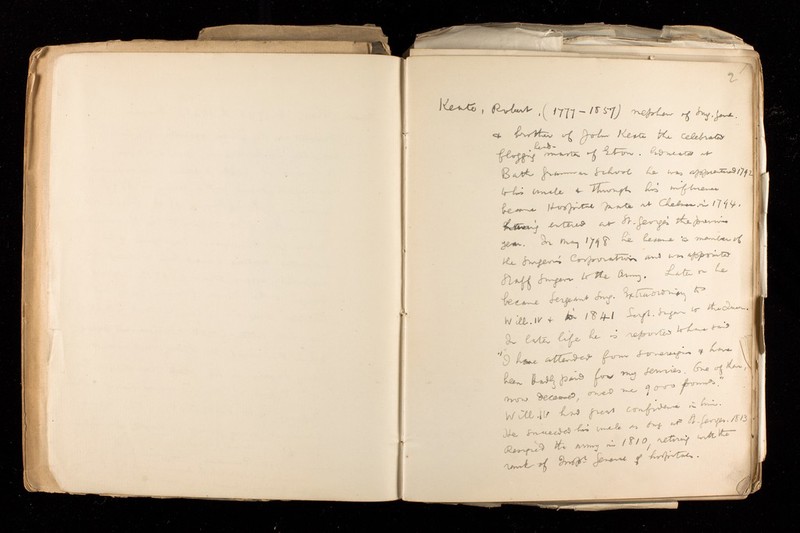 2
Keate, Robert. (1777–1857) nephew of Surg. Gen.
& brother of John Keate the celebrated
flogging head-master of Eton. Educated at
Bath Grammar School he was apprenticed 1792
to his uncle & through his influence
became Hospital mate at Chelsea in 1794.
having entered at St. George's the previous
year. In May 1798 he became a member of
the Surgeons Corporation and was appointed
Staff Surgeon to the Army. Later on he
became Sergeant Surg. Extraordinary to
Will. IV & in 1841 Sergt. Surgeon to the Queen.
In later life he is reported to have said
"I have attended four sovereigns & have
been badly paid for my services. One of them,
now deceased, owed me 9000 pounds."
Will. IV had great confidence in him.
He succeeded his uncle as Surg at St. Georges. 1813
Resigned the army in 1810, retiring with the
rank of Inspr. General of hospitals.